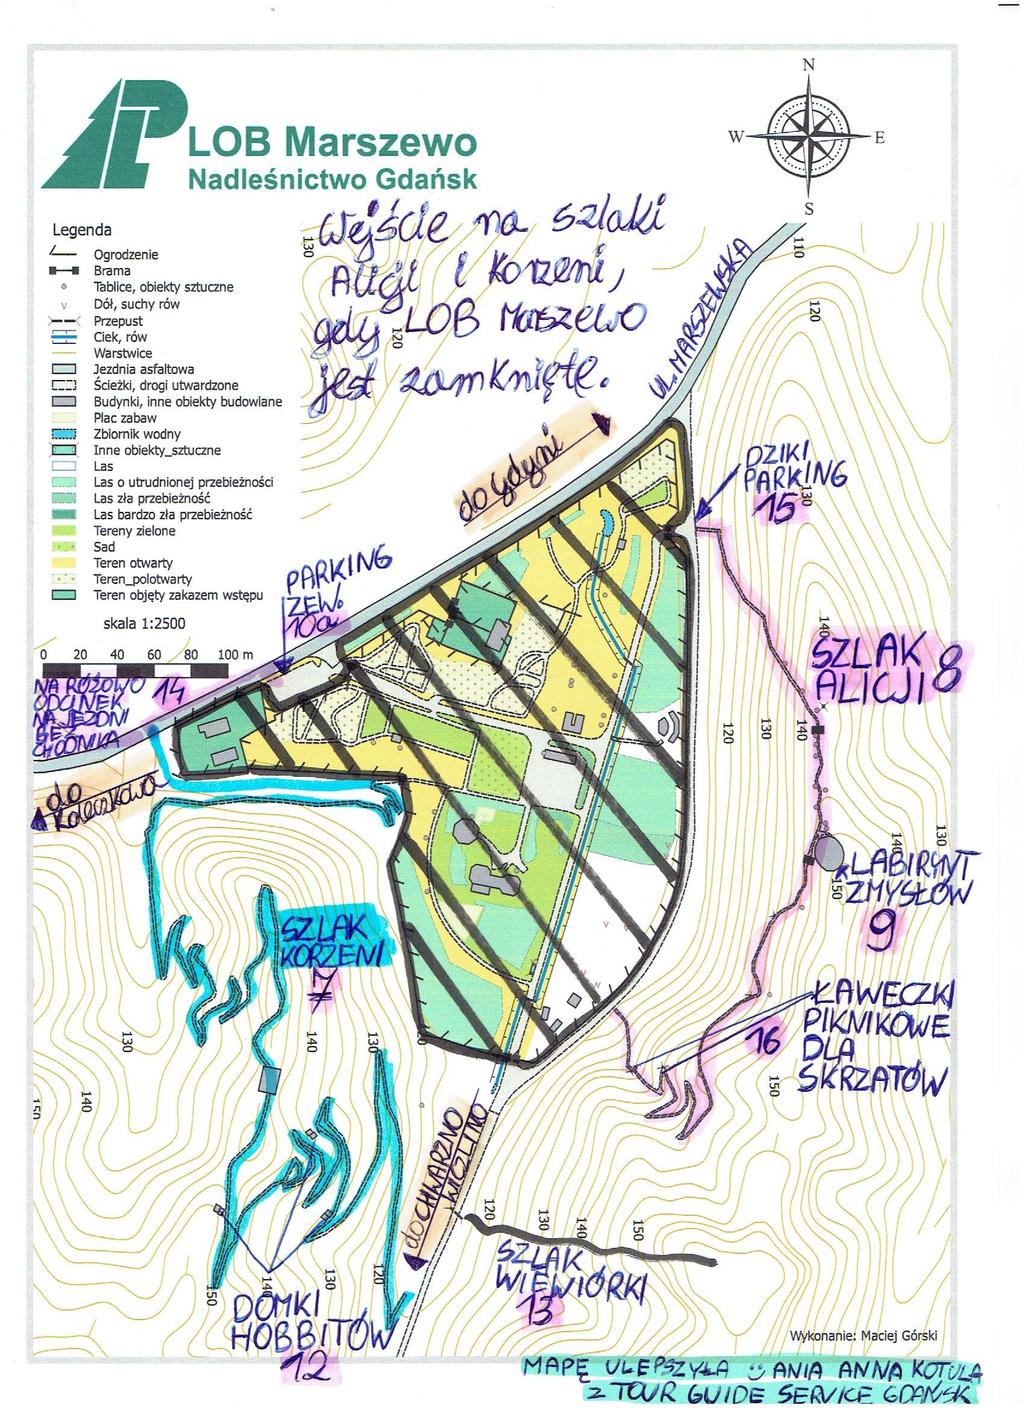 LOB Marszewo
Nadleśnictwo Gdańsk
N
W
E
S
Wejście na szlaki
Alicji i Korzeni,
gdy LOB Marszewo
jest zamknięte.
Legenda
Ogrodzenie
Brama
Tablice, obiekty sztuczne
Dół, suchy rów
Przepust
Ciek, rów
Warstwice
Jezdnia asfaltowa
Ścieżki, drogi utwardzone
Budynki, inne obiekty budowlane
Plac zabaw
Zbiornik wodny
Inne obiekty_sztuczne
Las
Las o utrudnionej przebieżności
Las zła przebieżność
Las bardzo zła przebieżność
Tereny zielone
Sad
Teren otwarty
Teren_polotwarty
Teren objęty zakazem wstępu
skala 1:2500
0 20 40 60 80 100 m
UL. MARSZEWSKA
do Gdyni
DZIKI
PARKING
15
PARKING
ZEW.
10a
NA RÓŻOWO
ODCINEK
NA JEZDNI
BEZ
CHODNIKA
14
do
Koleczkowa
SZLAK
ALICJI 8
LABIRYNT
ZMYSŁÓW
9
SZLAK
KORZENI
7
ŁAWECZKI
PIKNIKOWE
DLA
SKRZATÓW
16
do CHWARZNO
WICZLINO
SZLAK
WIEWIÓRKI
13
DOMKI
HOBBITÓW
12
130
120
110
120
130
140
120
130
140
140
130
150
130
140
150
140
130
150
120
130
140
150
150
140
130
120
Wykonanie: Maciej Górski
MAPĘ ULEPSZYŁA ANIA ANNA KOTULA
Z TOUR GUIDE SERVICE GDAŃSK